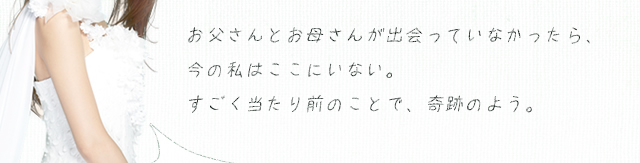 お父さんとお母さんが出会っていなかったら、
今の私はここにいない。
すごく当たり前のことで、奇跡のよう。